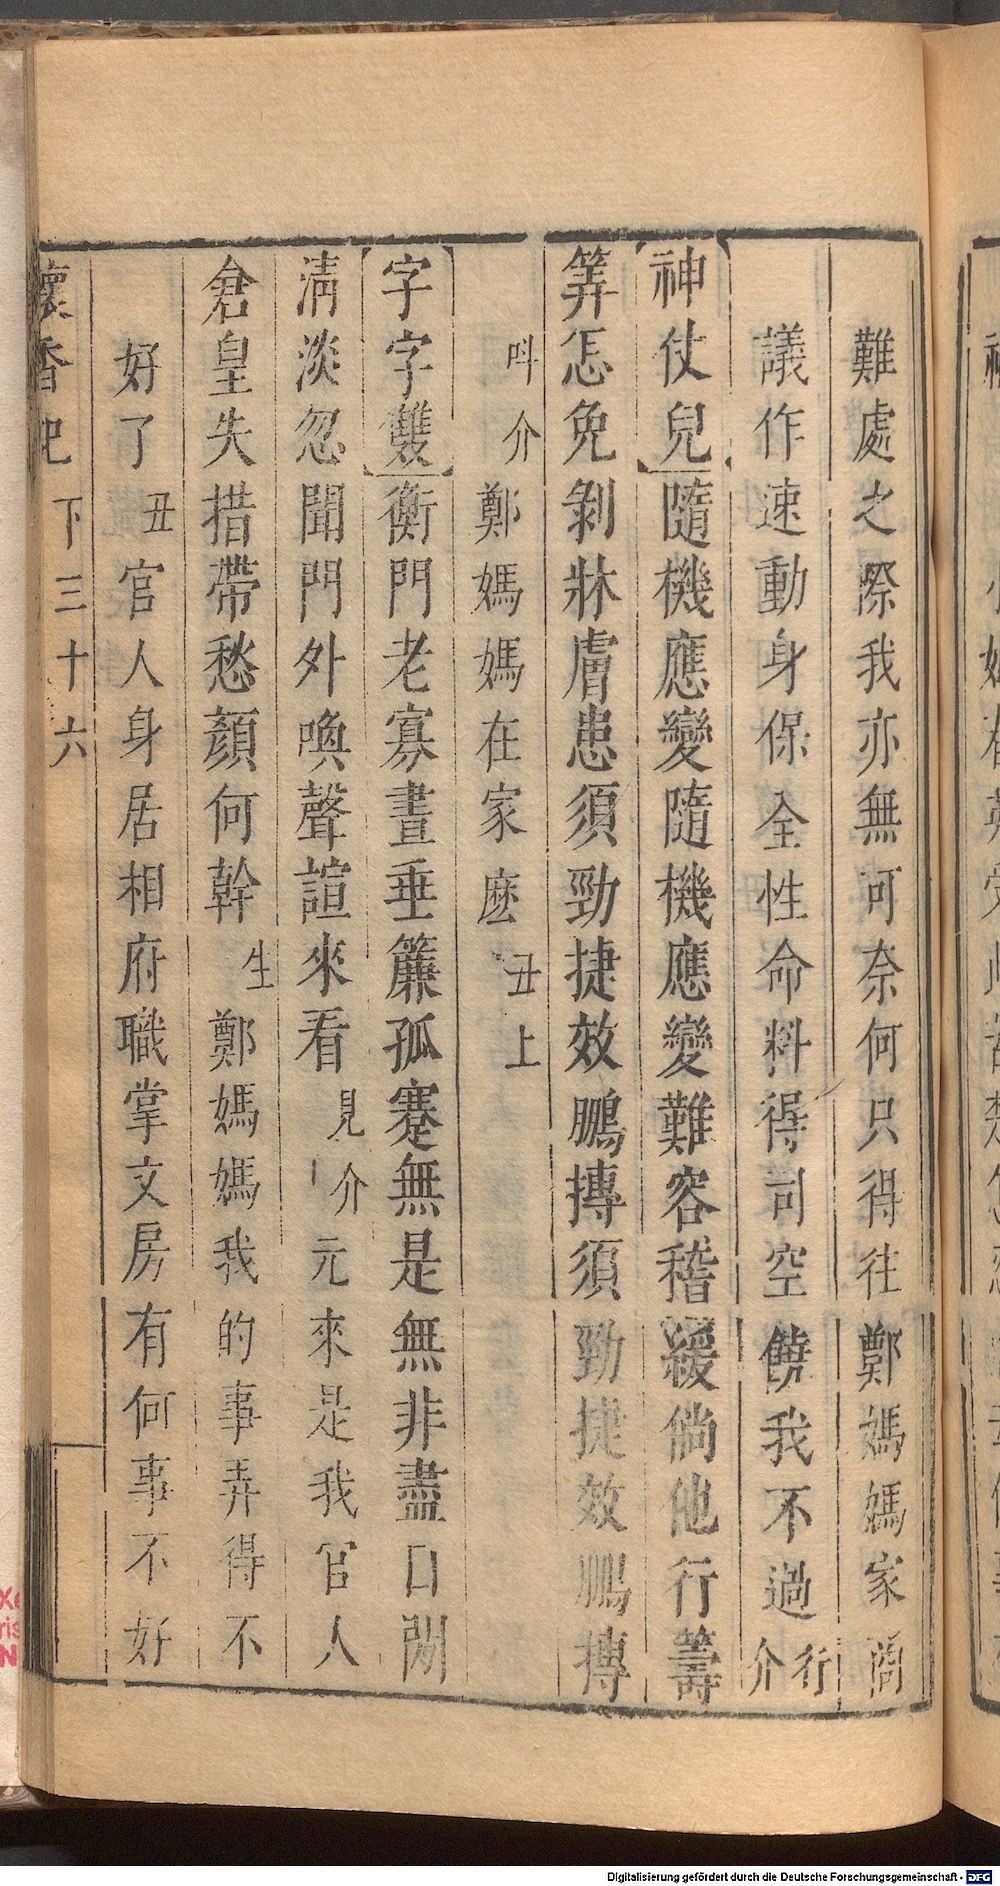 難處之際我亦無可奈何只得往鄭媽媽家商
議作速動身保全性命料得司空饒我不過行介
神仗兒隨機應變隨機應變難容稽緩倘他行籌
筭怎免剝牀膚患須勁捷效鵬摶須勁捷效鵬摶
呌介鄭媽媽在家麽丑上
字字雙衡門老寡晝垂簾孤蹇無是無非盡日閒
清淡忽聞門外喚聲諠來看見介元來是我官人
倉皇失措帶愁顏何幹生鄭媽媽我的事弄得不
好了丑官人身居相府職掌文房有何事不好
懷香記 下 三十六
Digitalisierung gefördert durch die Deutsche Forschungsgemeinschaft - DFG